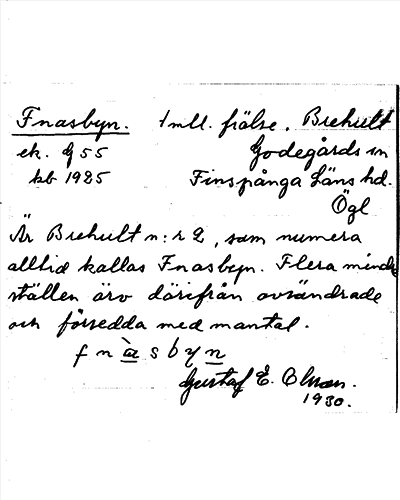 Fnasbyn. 1 mtl. frälse. Brehult
ek. J 55 Godegårds sn
kb 1925 Finspånga Läns hd.
Ögl
Är Brehult n:r 2, som numera
alltid kallas Fnasbyn. Flera mindre
ställen äro därifrån avsöndrade
och försedda med mantal.
f n à s b y n
Gustaf E. Olsson.
1930.